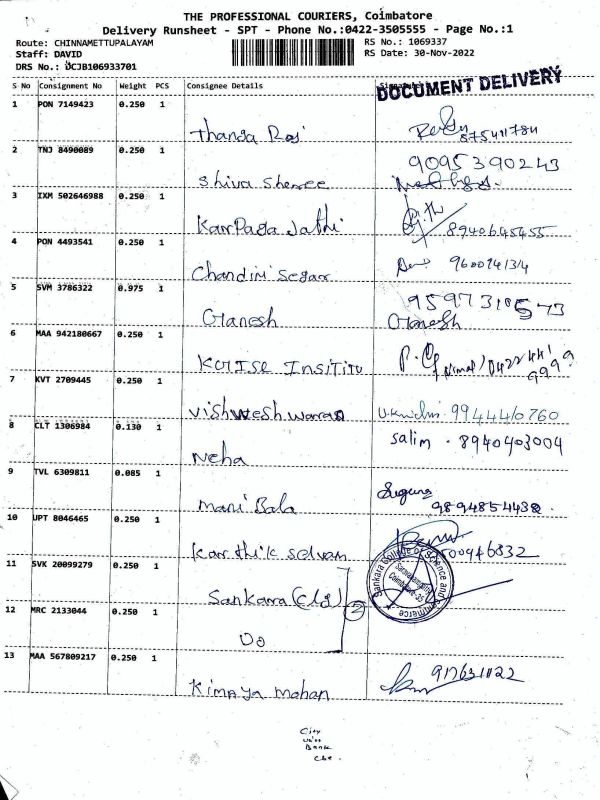 THE PROFESSIONAL COURIERS, Coimbatore
Delivery Runsheet - SPT - Phone No.:0422-3505555 - Page No.:1
Route: CHINNAMETTUPALAYAM RS No.: 1069337
Staff: DAVID RS Date: 30-Nov-2022
DRS No.: UCJB106933701
S No Consignment No Weight PCS Consignee Details
DOCUMENT DELIVERY
1 PON 7149423 0.250 1
Thanga Raj
2 TNJ 8490089 0.250 1 9095390243
Shiva Shree
3 IXM 502646988 0.250 1
Karpaga Jathi 8940645455
4 PON 4493541 0.250 1
Chandini Segar
5 SVM 3786322 0.975 1
Ganesh Ganesh
6 MAA 942180667 0.250 1
7 KVT 2709445 0.250 1
Vishweshwaran 9944410760
8 CLT 1306984 0.130 1 Salim . 8940403004
Neha
9 TVL 6309811 0.085 1 Suguna
Mani Bala 9894854438
10 UPT 8046465 0.250 1
Karthik Selvam
11 SVK 20099279 0.250 1 Sankara College of Science and Commerce
Saravanampatty Coimbatore-35
Sankara (Clg) 2
12 MRC 2133044 0.250 1
Do
13 MAA 567809217 0.250 1
Kimaya Mohan
City
Bank
Cbe.